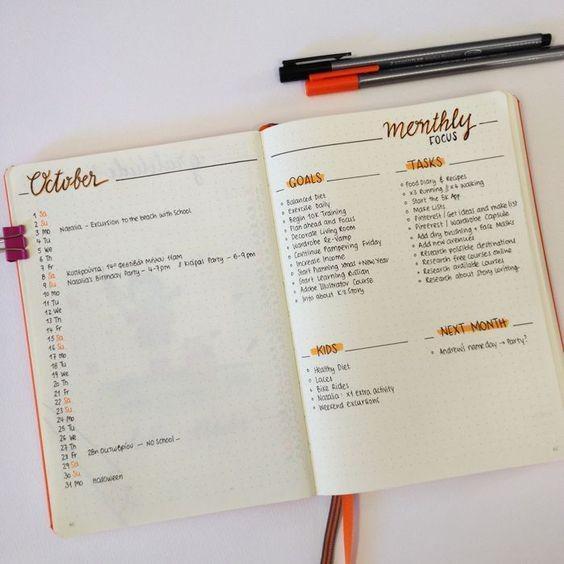 October
1 Sa
2 Su
3 Mo Natalia - Excursion to the beach with school
4 Tu
5 We
6 Th
7 Fr
8 Sa Μήλου 11am
9 Su Natalia's Birthday Party - 4-7pm // Party - 6-9pm
10 Mo
11 Tu
12 We
13 Th
14 Fr
15 Sa
16 Su
17 Mo
18 Tu
19 We
20 Th
21 Fr
22 Sa
23 Su
24 Mo
25 Tu
26 We
27 Th 28η Οκτωβρίου - NO SCHOOL -
28 Fr
29 Sa
30 Su
31 Mo Halloween
Monthly
FOCUS
GOALS
Balanced Diet
Exercise Daily
Begin 10K Training
Plan ahead and Focus
Decorate Living Room
Wardrobe Re-vamp
Continue Pampering Friday
Increase Income
Start Planning Xmas + New Year
Start Learning Italian
Adobe Illustrator Course
Info about K's Story
TASKS
Food Diary & Recipes
x3 Running // x4 walking
Start the 5K App
Make Lists
Pinterest / Get ideas and make list
Pinterest / Wardrobe Capsule
Add dry brushing + Face Masks
Add new avenues
Research possible destinations
Research free courses online
Research available Courses
Research about Story Writing
KIDS
Healthy Diet
Laces
Bike Rides
Natalia: x1 extra activity
Weekend excursions
NEXT MONTH
Andrew's nameday → Party?